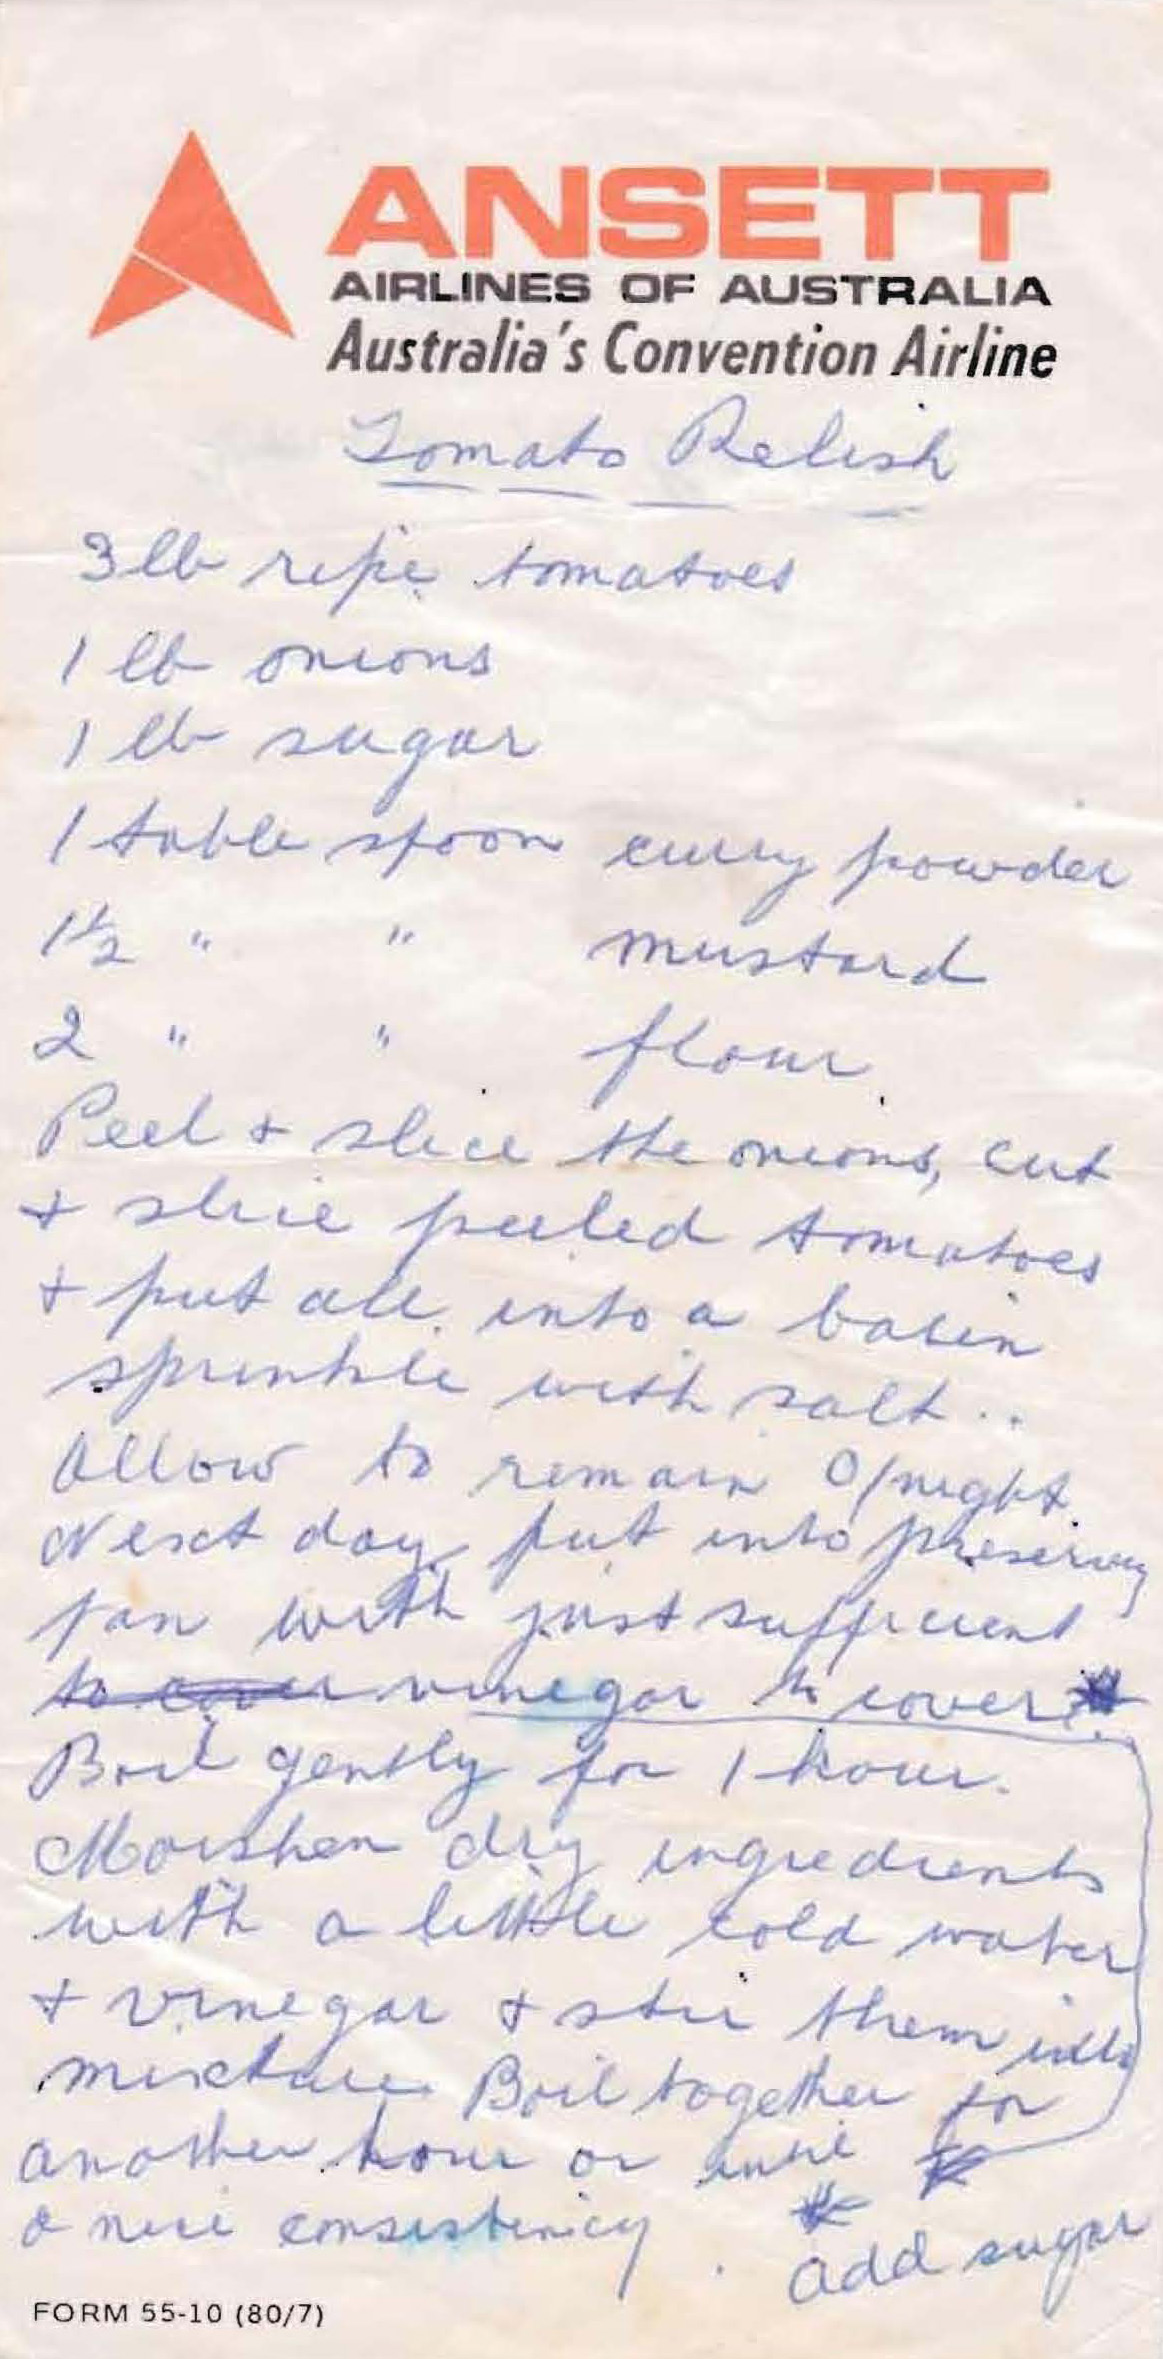 ANSETT
AIRLINES OF AUSTRALIA
Australia's Convention Airline
Tomato Relish
3 lb ripe tomatoes
1 lb onions
1 lb sugar
1 table spoon curry powder
1½ " " mustard
2 " " flour
Peel + slice the onions, cut
+ slice peeled tomatoes
+ put all into a basin
sprinkle with salt..
Allow to remain O/night
Next day put into preserving
pan with just sufficient
to cover vinegar to cover *
Boil gently for 1 hour.
Moisten dry ingredients
with a little cold water
+ vinegar + stir them into
mixture. Boil together for
another hour or until *
a nice consistency. *
add sugar
FORM 55-10 (80/7)